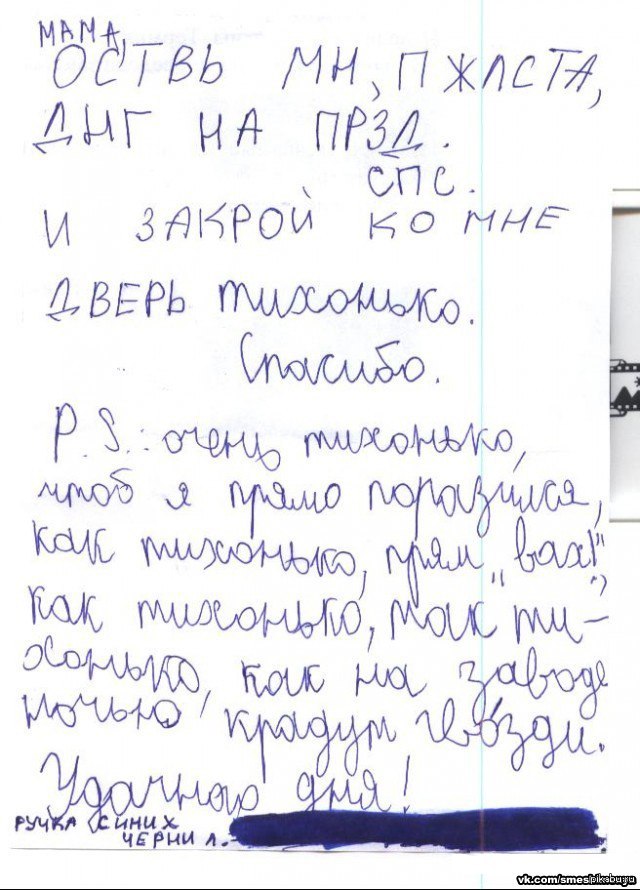 МАМА,
ОСТВЬ МН, ПЖЛСТА,
ДНГ НА ПРЗД.
СПС.
И ЗАКРОЙ КО МНЕ
ДВЕРЬ тихонько.
Спасибо.
P.S.: очень тихонько,
чтоб я прямо поразился,
как тихонько, прям „вах!",
как тихонько, так ти-
хонько, как на заводе
ночью крадут гвозди.
Удачного дня!
РУЧКА СИНИХ
ЧЕРНИЛ.
vk.com/smes
pikabu.ru